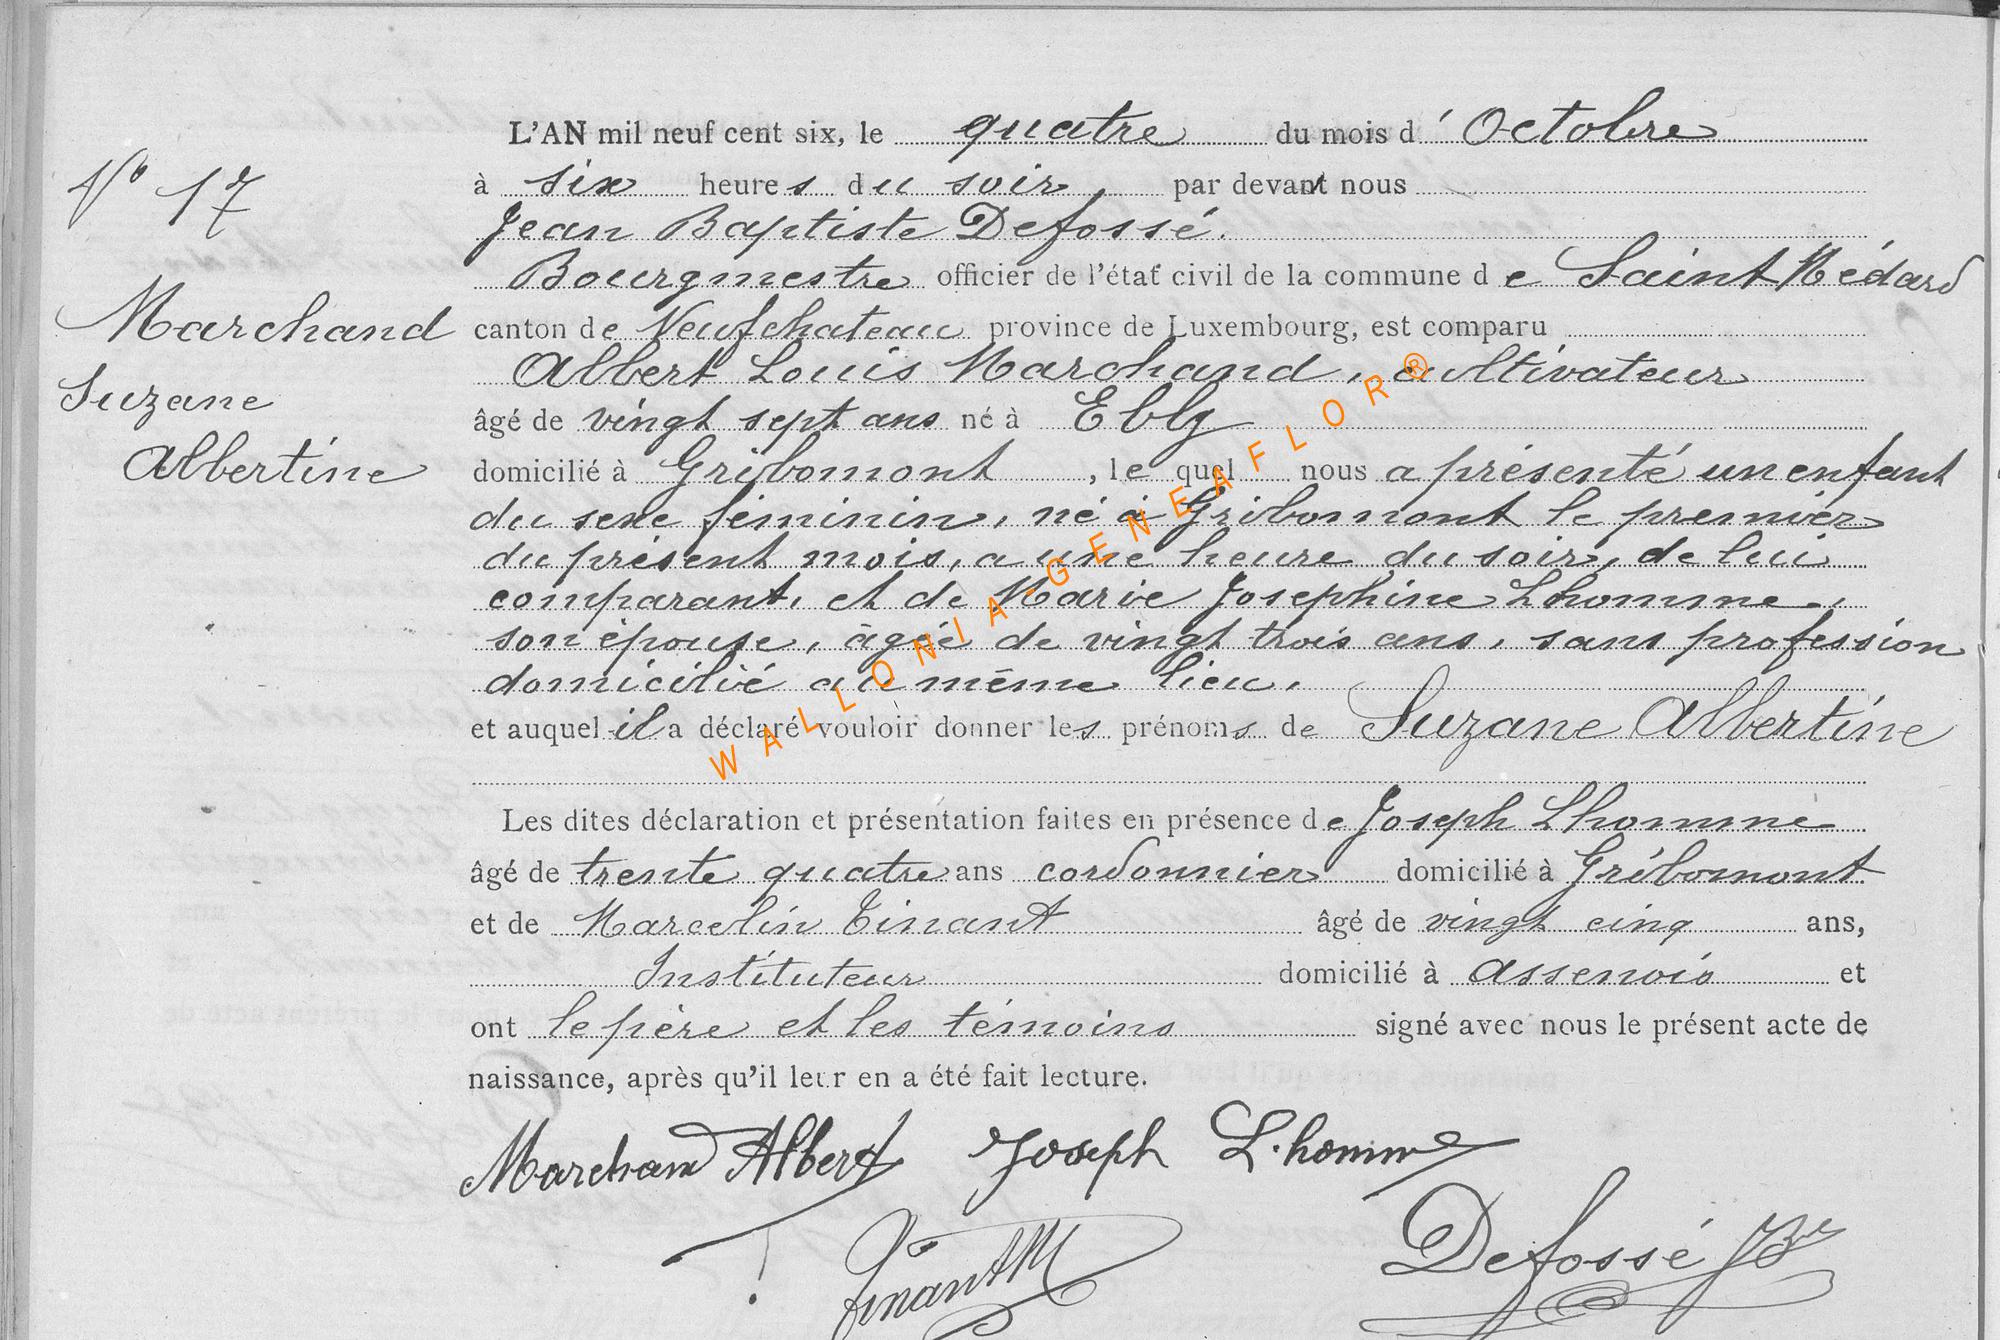 L'AN mil neuf cent six, le quatre du mois d'Octobre
N° 17
à six heures du soir, par devant nous
Jean Baptiste Defossé.
Bourgmestre officier de l'état civil de la commune de Saint Médard
Marchand
canton de Neufchateau province de Luxembourg, est comparu
Albert Louis Marchand, cultivateur
Suzane
âgé de vingt sept ans né à Ebly
Albertine
domicilié à Gribomont, lequel nous a présenté un enfant
du sexe féminin, né à Gribomont le premier
du présent mois, a une heure du soir, de lui
comparant, et de Marie Josephine Lhomme,
son épouse, âgée de vingt trois ans, sans profession
domicilié au même lieu.
et auquel il a déclaré vouloir donner les prénoms de Suzane Albertine
WALLONIA-GENEAFLOR®
Les dites déclaration et présentation faites en présence de Joseph Lhomme
âgé de trente quatre ans cordonnier domicilié à Gribomont
et de Marcelin Tinant âgé de vingt cinq ans,
Instituteur domicilié à Assenois et
ont le père et les témoins signé avec nous le présent acte de
naissance, après qu'il leur en a été fait lecture.
Marchand Albert Joseph L.homme
Tinant M Defossé JBte